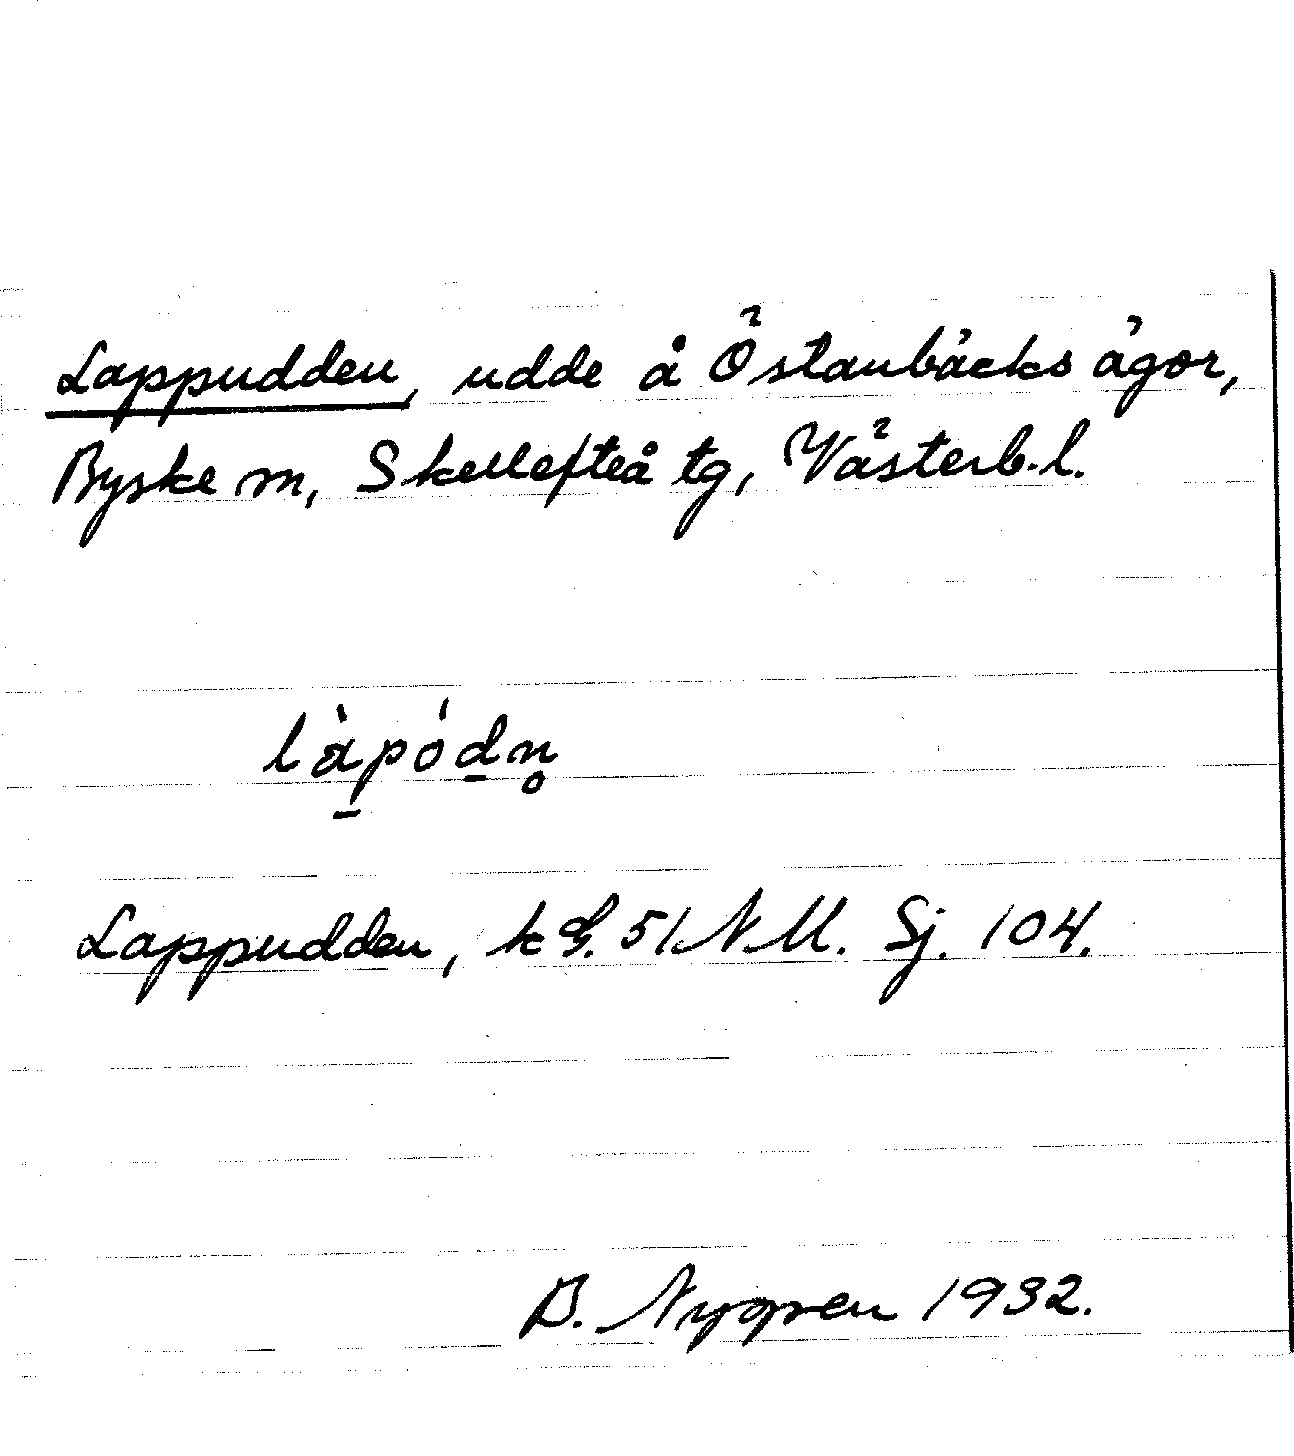 Lappudden, udde å Östanbäcks ägor,
Byske sn, Skellefteå tg, Västerb. l.
làpódn̥
Lappudden, k G. 51 NM. Sj. 104.
B. Nygren 1932.